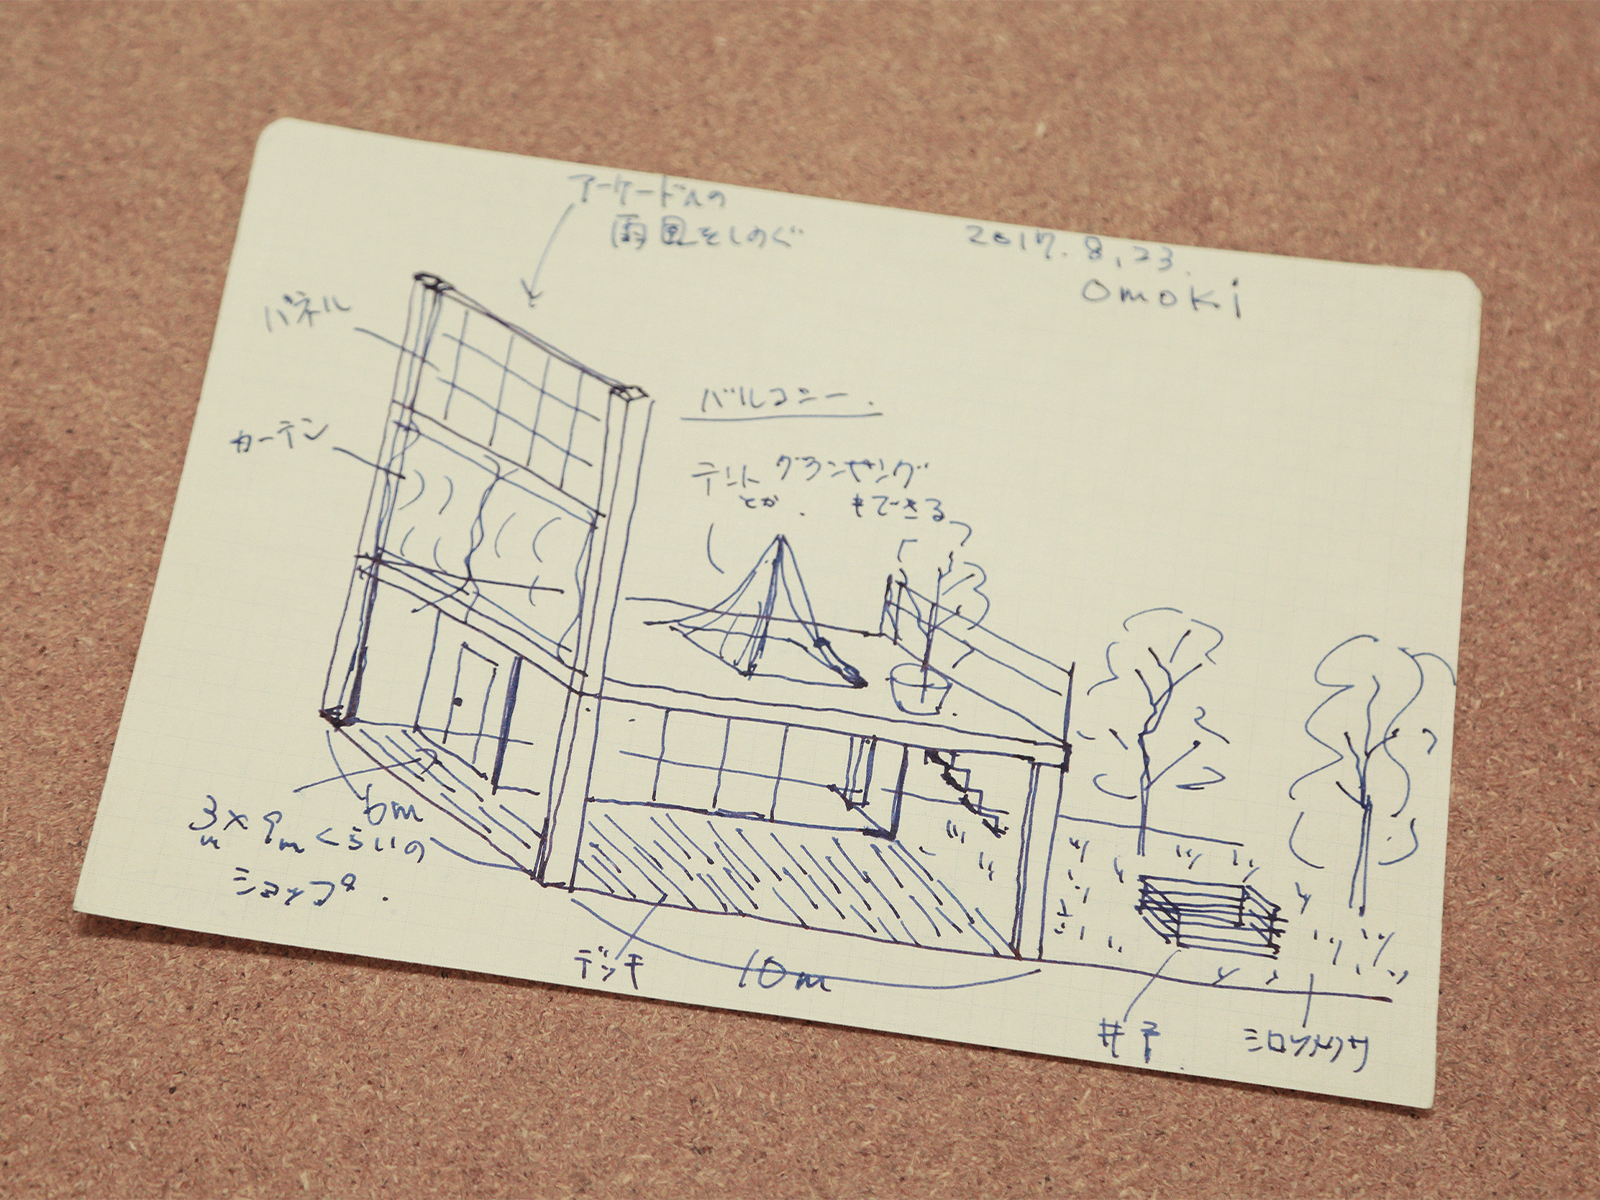 アーケードルの
雨風をしのぐ
2017.8.23.
omoki
パネル
バルコニー.
カーテン
テント グランピング
とか. もできる
6m
3m×9mくらいの
ショップ.
デッキ
10m
井戸
シロツメクサ